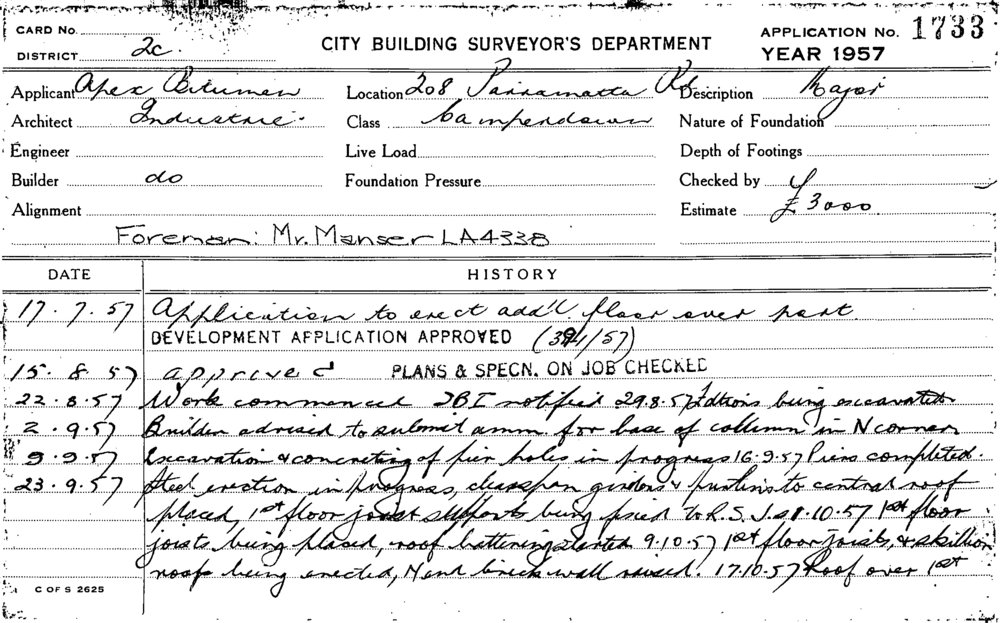 CARD No.
DISTRICT 2c.
CITY BUILDING SURVEYOR'S DEPARTMENT
APPLICATION No. 1733
YEAR 1957
Applicant Apex Bitumen Location 208 Parramatta Rd Description Major
Architect Industrie. Class Camperdown Nature of Foundation
Engineer Live Load Depth of Footings
Builder do Foundation Pressure Checked by
Alignment Estimate £3000
Foreman: Mr. Manser LA4338
DATE HISTORY
17.7.57 Application to erect add'l floor over part.
DEVELOPMENT APPLICATION APPROVED ( /57)
15.8.57 approved PLANS & SPECN. ON JOB CHECKED
22.8.57 Work commenced DBI notified 29.8.57 Fdtions being excavated
2.9.57 Builder advised to submit amm for base of collumn in N corner
9.9.57 Excavation & concreting of pier holes in progress 16.9.57 Piers completed.
23.9.57 Steel erection in progress, clearspan girders & purlins to central roof
placed, 1st floor joist supports being fixed to R.S.J.s 1.10.57 1st floor
joists being placed, roof battening started 9.10.57 1st floor joists, & skillion
roofs being erected, N end brick wall raised. 17.10.57 Roof over 1st
C OF S 2625